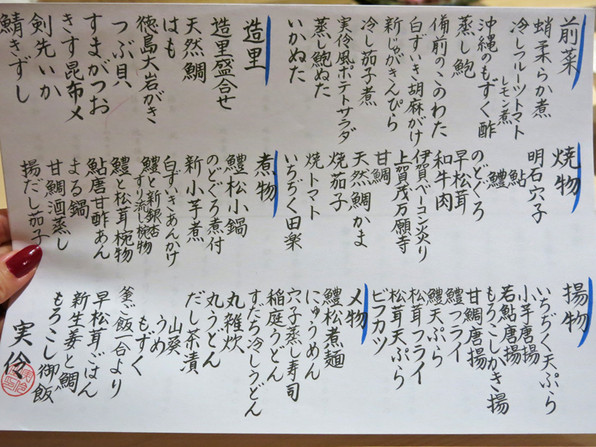 前菜
蛸柔らか煮
冷しフルーツトマト
レモン煮
沖縄のもずく酢
蒸し鮑
備前のこのわた
白ずいき胡麻がけ
新じゃがきんぴら
冷し茄子煮
実伶風ポテトサラダ
蒸し鮑ぬた
いかぬた
造里
造里盛合せ
天然鯛
はも
徳島大岩がき
つぶ貝
すまがつお
きす昆布〆
剣先いか
鯖きずし
焼物
明石穴子
鮎
鱧
のどぐろ
早松茸
和牛肉
伊賀ベーコン炙り
上賀茂万願寺
甘鯛
天然鯛かま
焼茄子
焼トマト
いちぢく田楽
煮物
鱧松小鍋
のどぐろ煮付
新小芋煮
白ずいきあんかけ
鱧と新銀杏
すり流し椀物
鱧と松茸椀物
鮎唐甘酢あん
まる鍋
甘鯛酒蒸し
揚だし茄子
揚物
いちぢく天ぷら
小芋唐揚
若鮎唐揚
もろこしかき揚
甘鯛唐揚
鱧フライ
鱧天ぷら
松茸フライ
松茸天ぷら
ビフカツ
〆物
鱧松煮麺
にゅうめん
穴子蒸し寿司
稲庭うどん
すだち冷しうどん
丸雑炊
丸うどん
だし茶漬
山葵
うめ
もずく
釜ご飯一合より
早松茸ごはん
新生姜と鯛
もろこし御飯
実伶